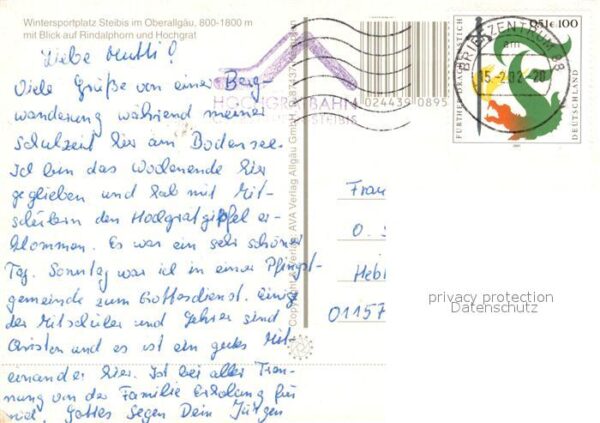 Wintersportplatz Steibis im Oberallgäu, 800-1800 m
mit Blick auf Rindalphorn und Hochgrat
Liebe Mutti!
Viele Grüße von einer Berg-
wanderung während meiner
Schulzeit hier am Bodensee.
Ich bin das Wochenende hier
geglieben und hab mit Mit-
schülern den Hochgratgipfel er-
klommen. Es war ein sehr schöner
Tag. Sonntag war ich in einer Pfingst-
gemeinde zum Gottesdienst. Einige
der Mitschüler und Lehrer sind
Christen und es ist ein gutes Mit-
einander hier. Ist bei aller Tren-
nung von der Familie Erholung für
mich. Gottes Segen Dein Jürgen
HOCHGRATBAHN
STEIBIS
Copyright & Verlag AVA Verlag Allgäu GmbH
024439 0895
BRIEFZENTRUM 88
am
15.2.02-20
FURTHER DRACHENSTICH
0,51€ 100
DEUTSCHLAND
2001
Frau
O.
Heb
01157
privacy protection
Datenschutz